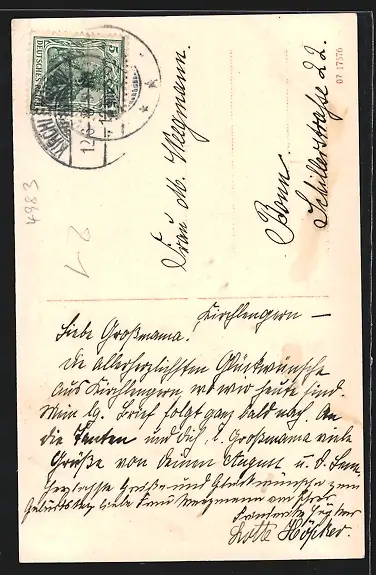 DEUTSCHES REICH
5
07 17576
4983
Frau M. Wegmann.
Bonn
Schillerstraße 22.
Kirchlengern —
Liebe Großmama!
Die allerherzlichsten Glückwünsche
aus Kirchlengern, wo wir heute sind.
Mein lg. Brief folgt ganz bald nach. An
die Tanten und Dich, l. Großmama viele
Grüße von deinem August u. d.
Herzlichste Grüße und Glückwünsche zum
Geburtstag liebe Frau Wegmann von Ihrer
Lotte Höpker.